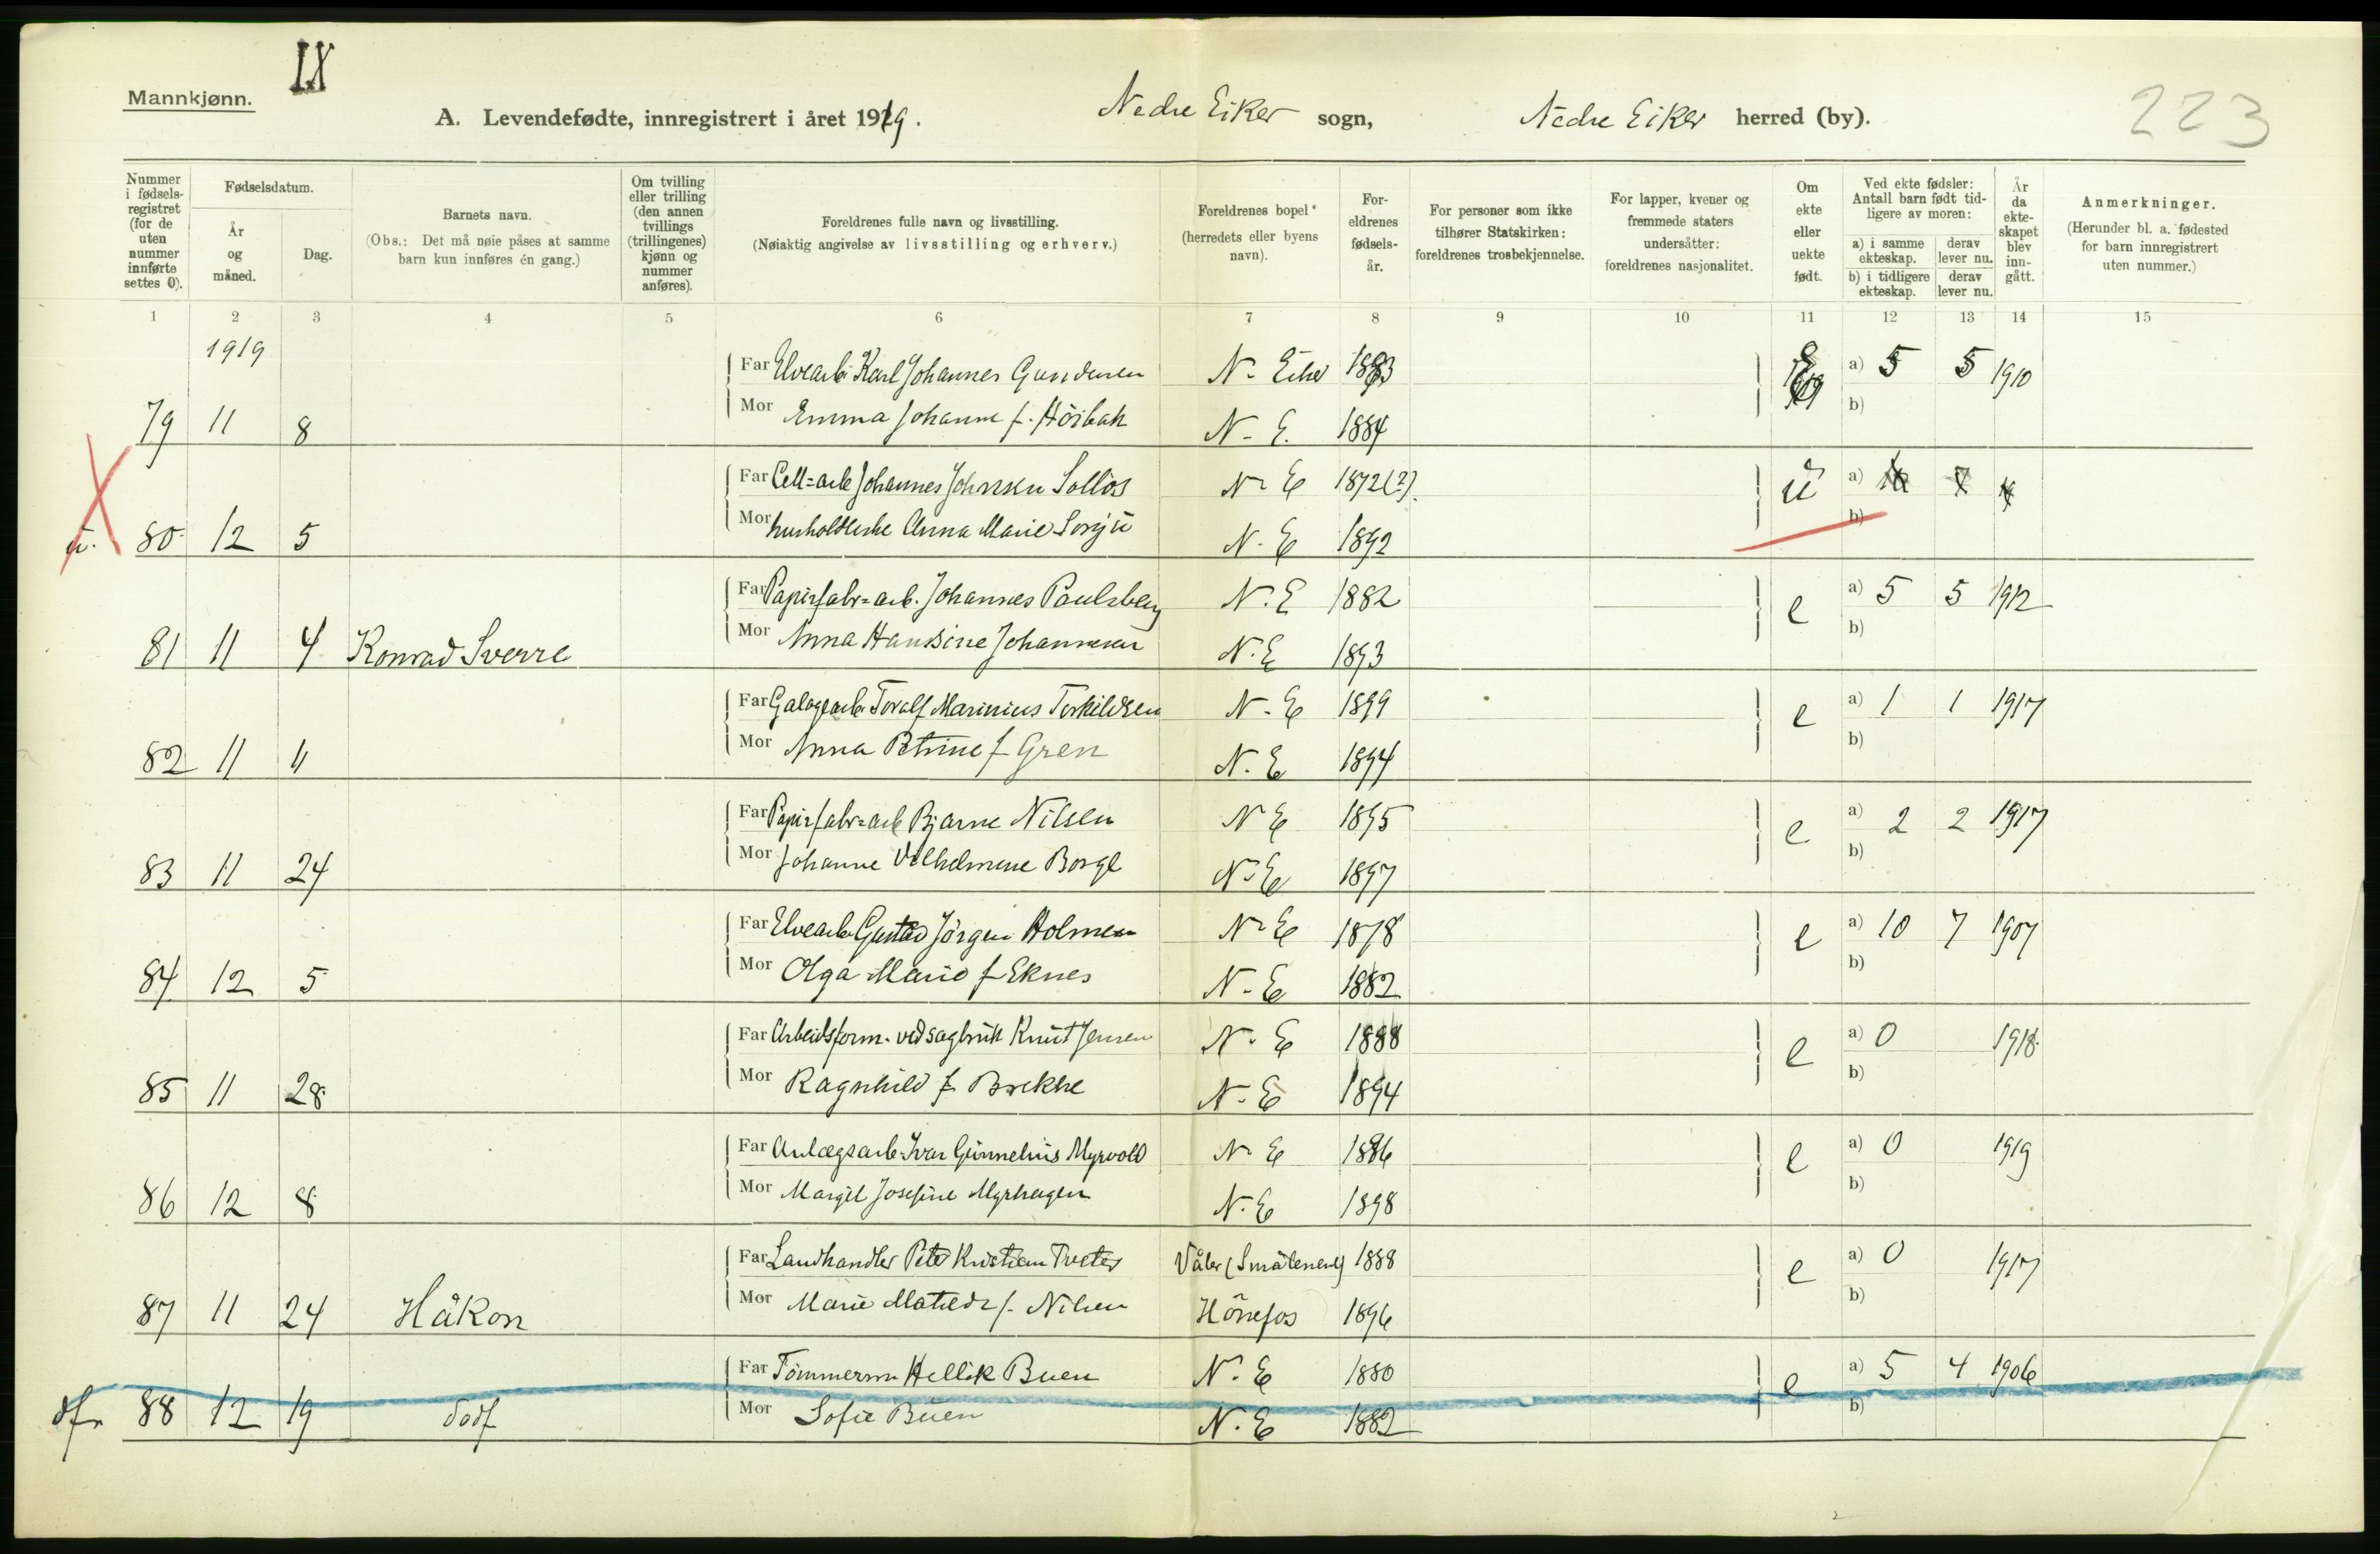 IX
Mannkjønn.
A. Levendefødte, innregistrert i året 1919.
Nedre Eiker sogn,
Nedre Eiker herred (by).
223
Nummer i fødsels-registret (for de uten nummer innførte settes 0).
Fødselsdatum.
År og måned.
Dag.
Barnets navn.
(Obs.: Det må nøie påses at samme barn kun innføres én gang.)
Om tvilling eller trilling (den annen tvillings (trillingenes) kjønn og nummer anføres).
Foreldrenes fulle navn og livsstilling.
(Nøiaktig angivelse av livsstilling og erhverv.)
Foreldrenes bopel (herredets eller byens navn).
For-eldrenes fødsels-år.
For personer som ikke tilhører Statskirken: foreldrenes trosbekjennelse.
For lapper, kvener og fremmede staters undersåtter: foreldrenes nasjonalitet.
Om ekte eller uekte født.
Ved ekte fødsler: Antall barn født tid-ligere av moren:
a) i samme ekteskap.
derav lever nu.
b) i tidligere ekteskap.
derav lever nu.
År da ekte-skapet blev inn-gått.
Anmerkninger.
(Herunder bl. a. fødested for barn innregistrert uten nummer.)
1 2 3 4 5 6 7 8 9 10 11 12 13 14 15
1919
Far Elvearb. Karl Johannes Gundersen N. Eiker 1883 a) 5 5 1910
79 11 8 Mor Emma Johanne f. Hörbak N. E. 1884 b)
Far Cell=arb Johannes Johnsen Solløs N. E 1872(?). ü a)
ü. 80 12 5 Mor husholderske Anna Marie N. E 1892 b)
Far Papirfabr=arb. Johannes Paulsberg N. E 1882 e a) 5 5 1912
81 11 4 Konrad Sverre Mor Anna Hansine Johannesen N. E 1893 b)
Far Toralf Marinius Torkildsen N. E 1899 e a) 1 1 1917
82 11 11 Mor Anna Petrine f Gren N. E 1894 b)
Far Papirfabr=arb Bjarne Nilsen N E 1895 e a) 2 2 1917
83 11 24 Mor Johanne Vilhelmine Borge N. E 1897 b)
Far Elvearb Gustav Jörgen Holmen N. E 1878 e a) 10 7 1907
84 12 5 Mor Olga Marie f Eknes N. E 1882 b)
Far Arbeidsform. ved sagbruk Knut Jensen N. E 1888 e a) 0 1918
85 11 28 Mor Ragnhild f Brekke N. E 1894 b)
Far Anlægsarb. Ivar Gunnelius Myrvold N E 1886 e a) 0 1919
86 12 8 Mor Margit Josefine Myrhagen N. E 1898 b)
Far Landhandler Peter Kristian Tveter Våler (Smålenene) 1888 e a) 0 1917
87 11 24 Håkon Mor Marie Matilde f. Nilsen Hönefos 1896 b)
Far Tömmerm. Hellik Buen N. E 1880 e a) 5 4 1906
dfr 88 12 19 dödf Mor Sofie Buen N. E 1882 b)